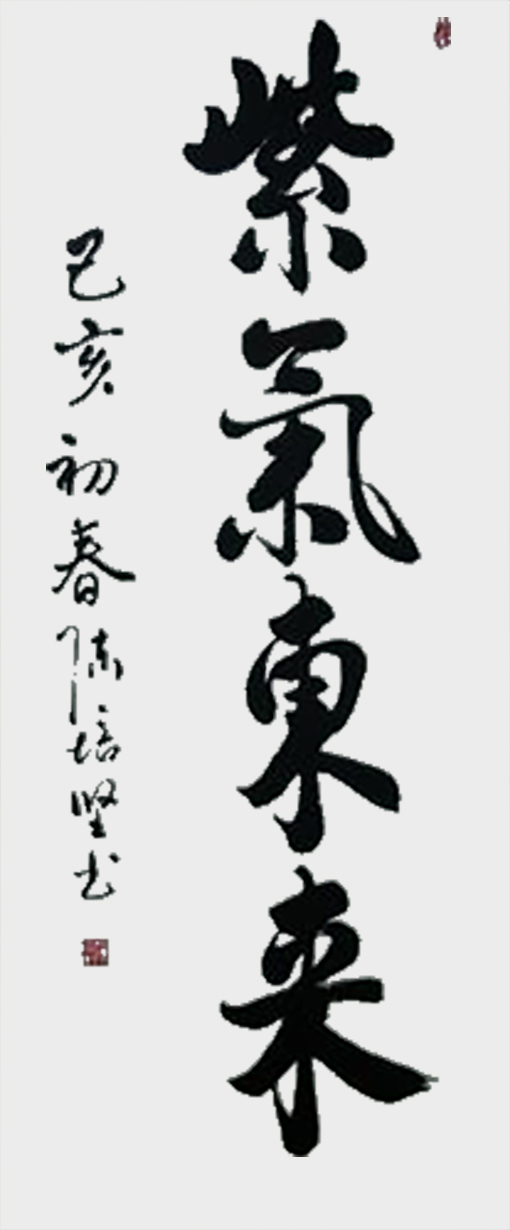 紫氣東来
己亥初春陈培坚书